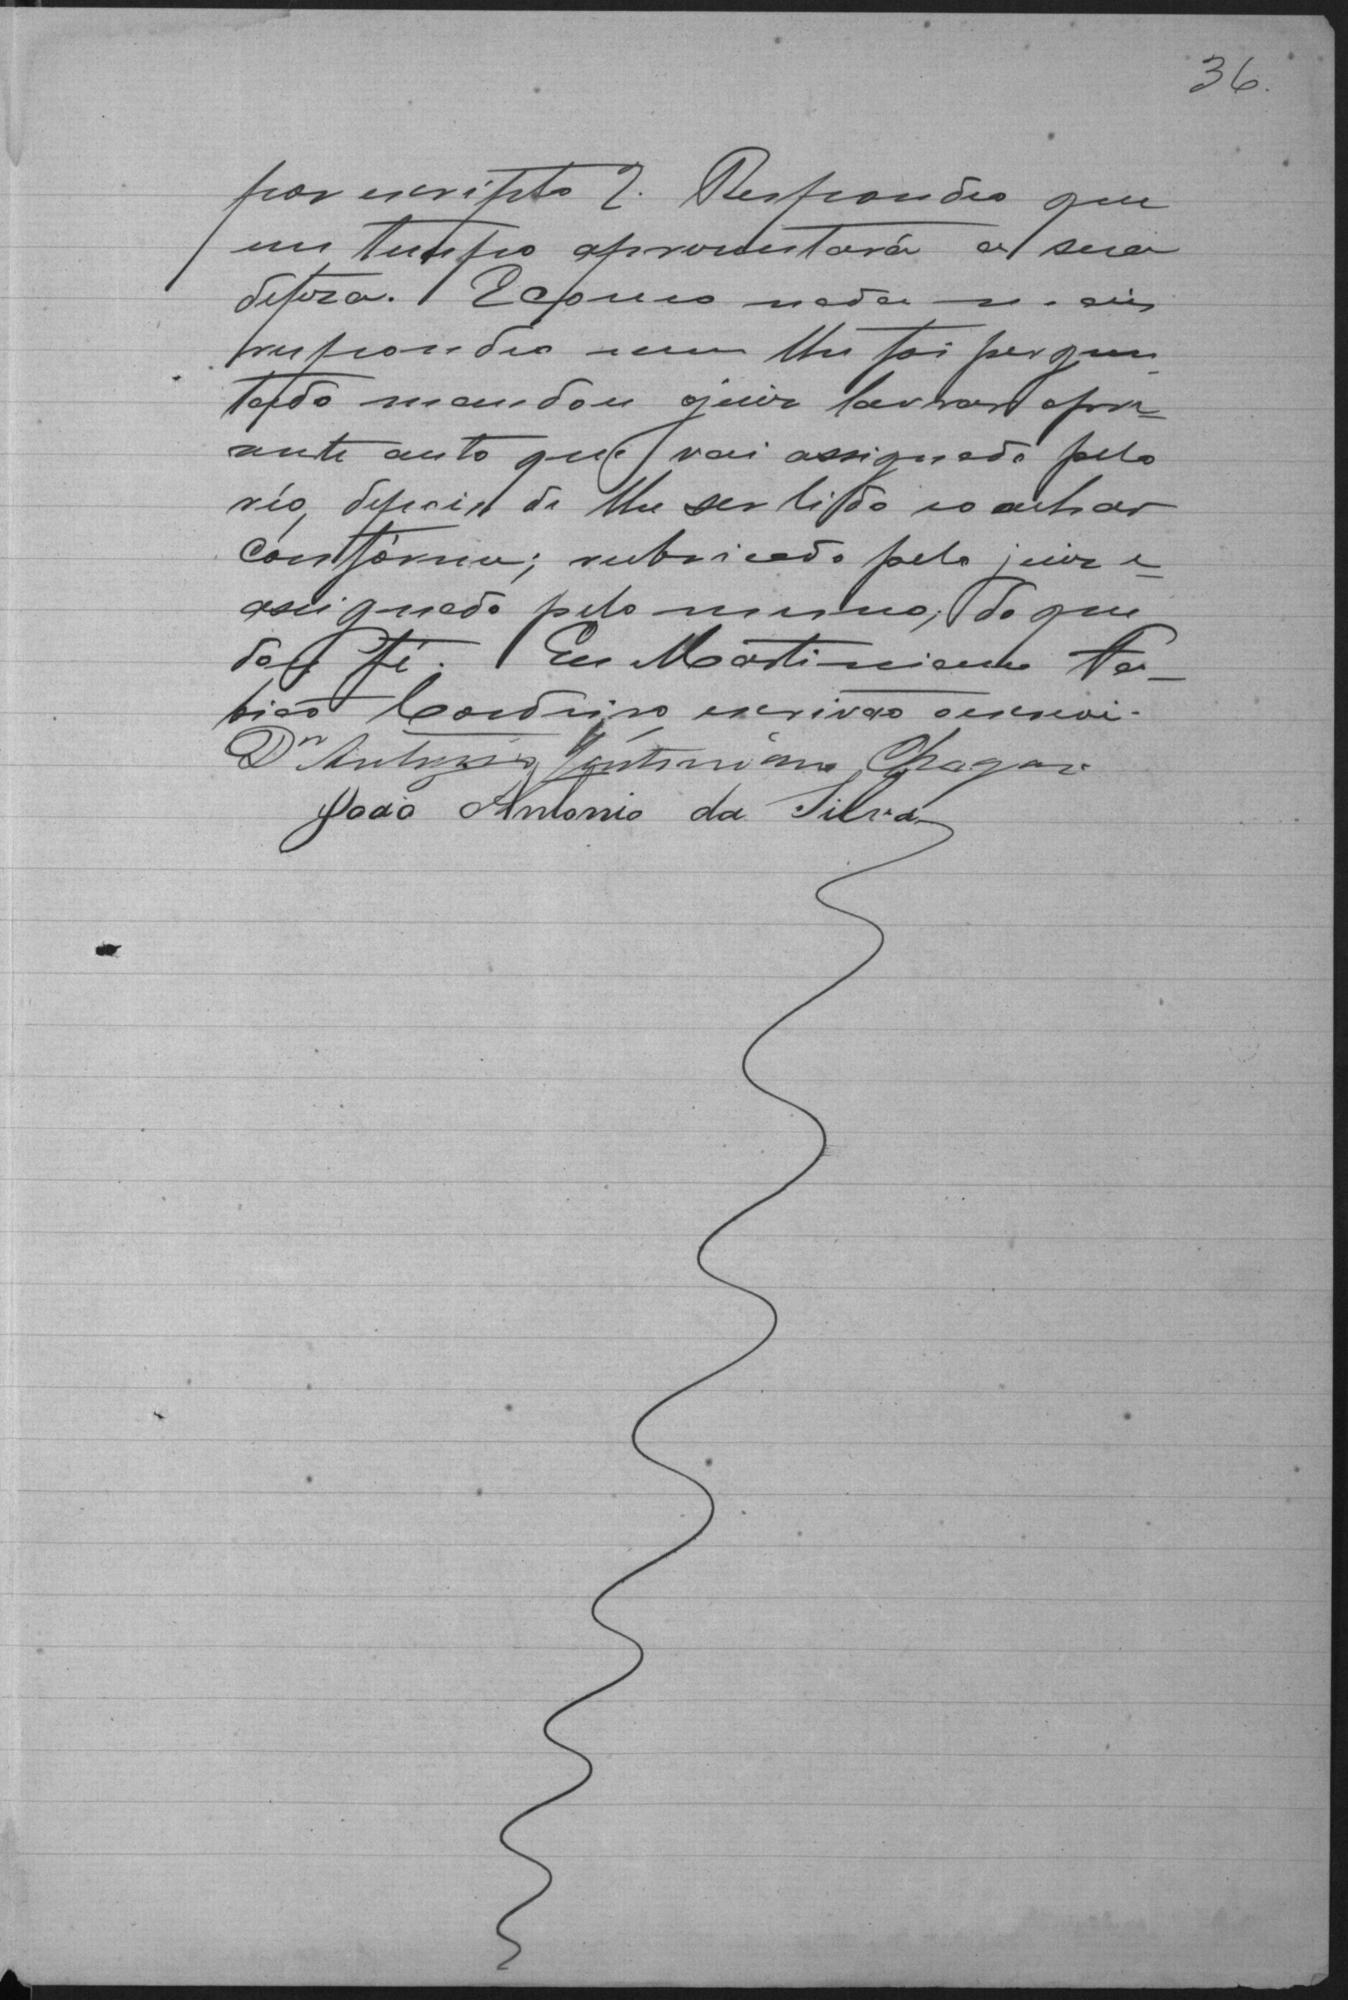 36.
por escripto? Respondeo que
em tempo apresentará a sua
defeza. E como nada mais
respondeo nem lhe foi pergun-
tado mandou o juiz lavrar o pre-
sente auto que vai assignado pelo
réo, depois de lhe ser lido e o achar
confórme; rubricado pelo juiz e
assignado pelo mesmo, do que
dou fé. Eu Martiniano Fa-
bião Cordeiro escrivão o escrevi.
Dr Antonio Chagas
João Antonio da Silva